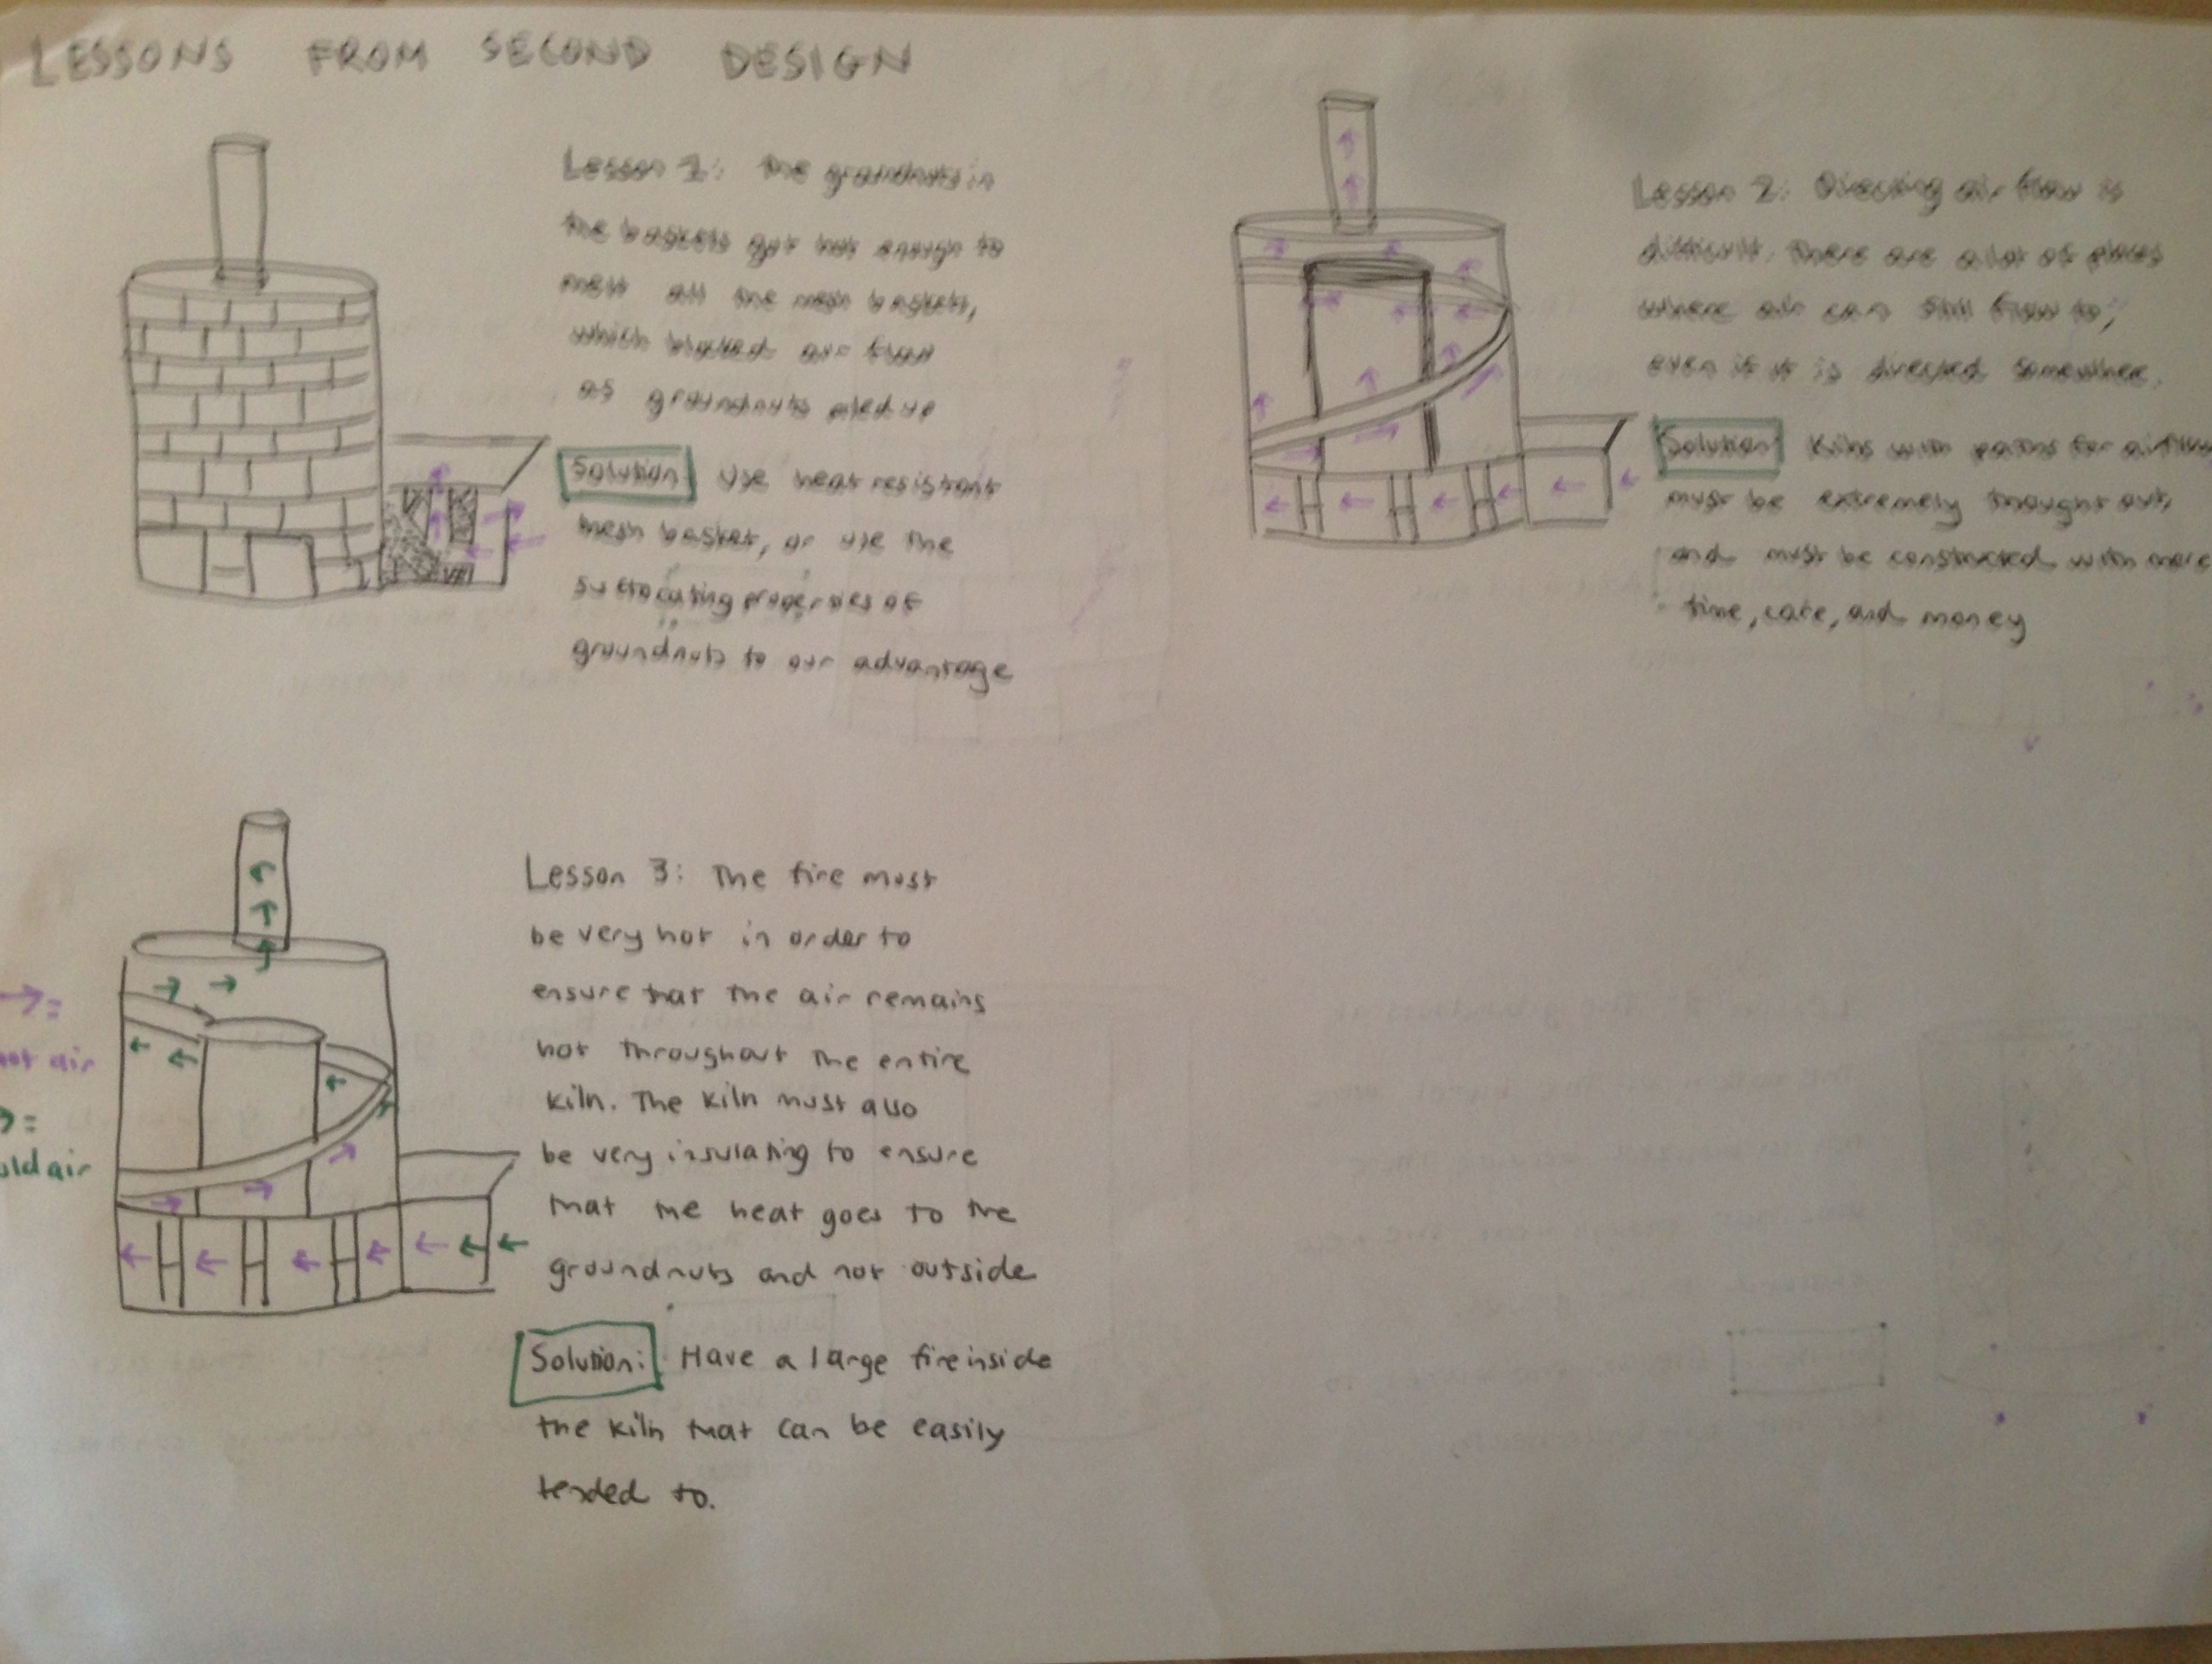 LESSONS FROM SECOND DESIGN
Lesson 1: The groundnuts in
the baskets got hot enough to
melt all the mesh baskets,
which blocked air flow
as groundnuts piled up
Solution: Use heat resistant
mesh basket, or use the
suffocating properties of
groundnuts to our advantage
Lesson 2: Directing air flow is
difficult. There are a lot of places
where air can still flow to,
even if it is directed somewhere.
Solution: Kilns with paths for airflow
must be extremely thought out,
and must be constructed with more
time, care, and money
Lesson 3: The fire must
be very hot in order to
ensure that the air remains
hot throughout the entire
kiln. The kiln must also
be very insulating to ensure
that the heat goes to the
groundnuts and not outside
Solution: Have a large fire inside
the kiln that can be easily
tended to.
→=
hot air
→=
old air